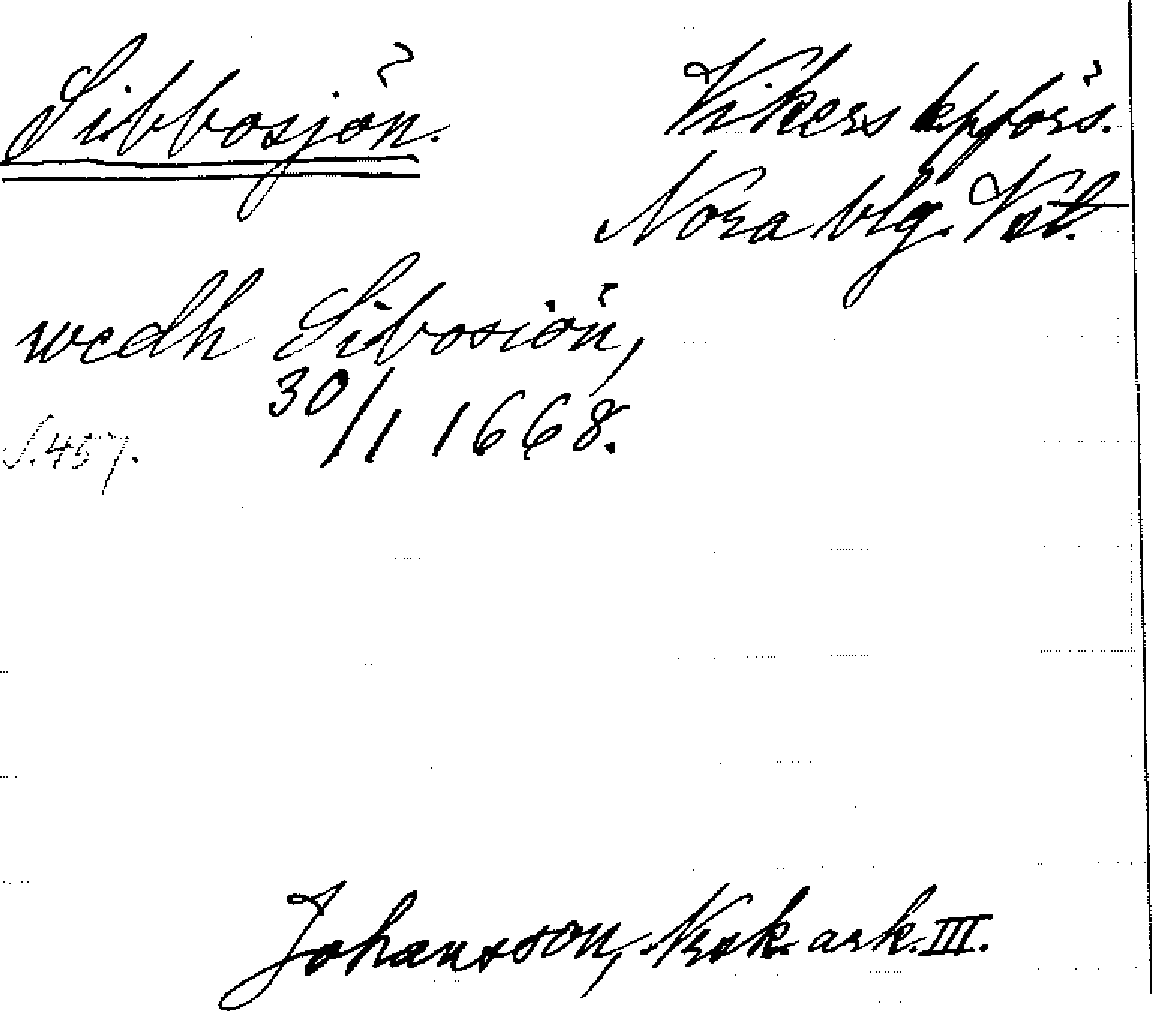 Sibbosjön.
Vikers kpförs.
Nora blg. Vst.
wedh Sibosiön,
30/1 1668.
S. 457.
Johansson, Nsk. ark. III.